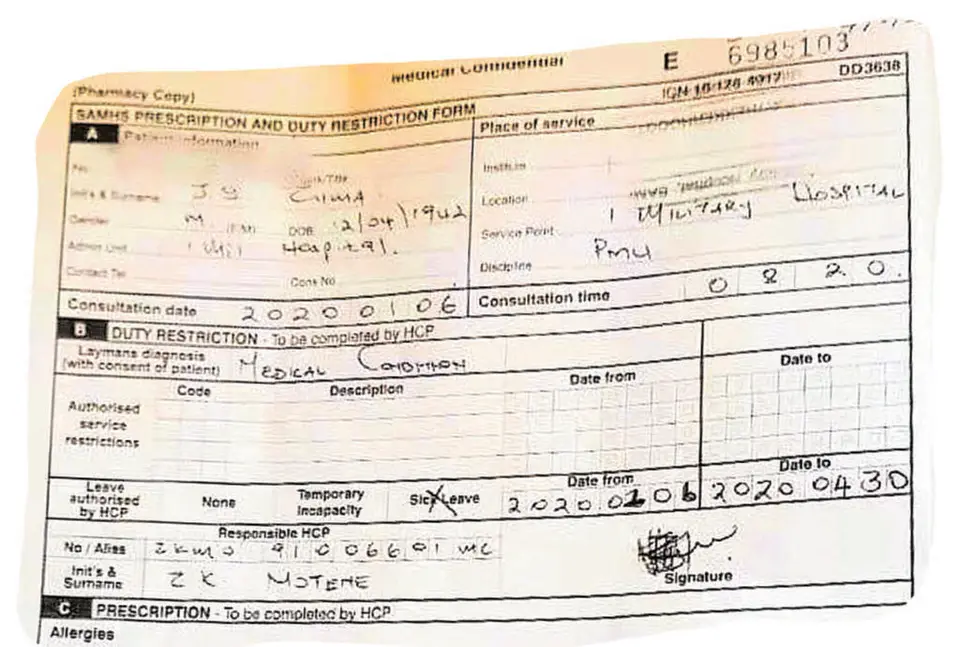 Medical Confidential
E 6985103
(Pharmacy Copy)
DD3638
SAMHS PRESCRIPTION AND DUTY RESTRICTION FORM
A Patient information
Place of service
No
Institute
Init's & Surname J.G ZUMA
Location 1 MILITARY HOSPITAL
Gender M. (F/M) DOB 12/04/1942
Service Point PMU
Admin Unit 1 Mil Hospital.
Discipline
Contact Tel Cons No
Consultation date 20200106
Consultation time 0820.
B DUTY RESTRICTION - To be completed by HCP
Laymans diagnosis
(with consent of patient) MEDICAL CONDITION
Code Description Date from Date to
Authorised
service
restrictions
Leave
authorised
by HCP
None
Temporary
Incapacity
Sick Leave
Date from 20200106
Date to 20200430
Responsible HCP
No / Alias ZKMO 91006601 MC
Init's &
Surname Z K MOTENE
Signature
C PRESCRIPTION - To be completed by HCP
Allergies